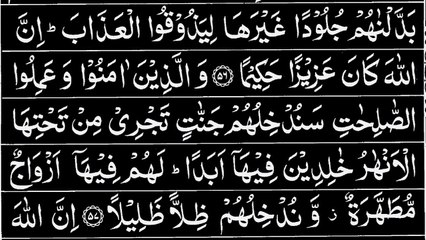 بَدَّلْنٰهُمْ جُلُوْدًا غَيْرَهَا لِيَذُوْقُوا الْعَذَابَ ؕ اِنَّ
اللّٰهَ كَانَ عَزِيْزًا حَكِيْمًا ﴿۵۶﴾ وَ الَّذِيْنَ اٰمَنُوْا وَ عَمِلُوا
الصّٰلِحٰتِ سَنُدْخِلُهُمْ جَنّٰتٍ تَجْرِىْ مِنْ تَحْتِهَا
الْاَنْهٰرُ خٰلِدِيْنَ فِيْهَاۤ اَبَدًا ؕ لَهُمْ فِيْهَاۤ اَزْوَاجٌ
مُّطَهَّرَةٌ ؗ وَّ نُدْخِلُهُمْ ظِلًّا ظَلِيْلًا ﴿۵۷﴾ اِنَّ اللّٰهَ